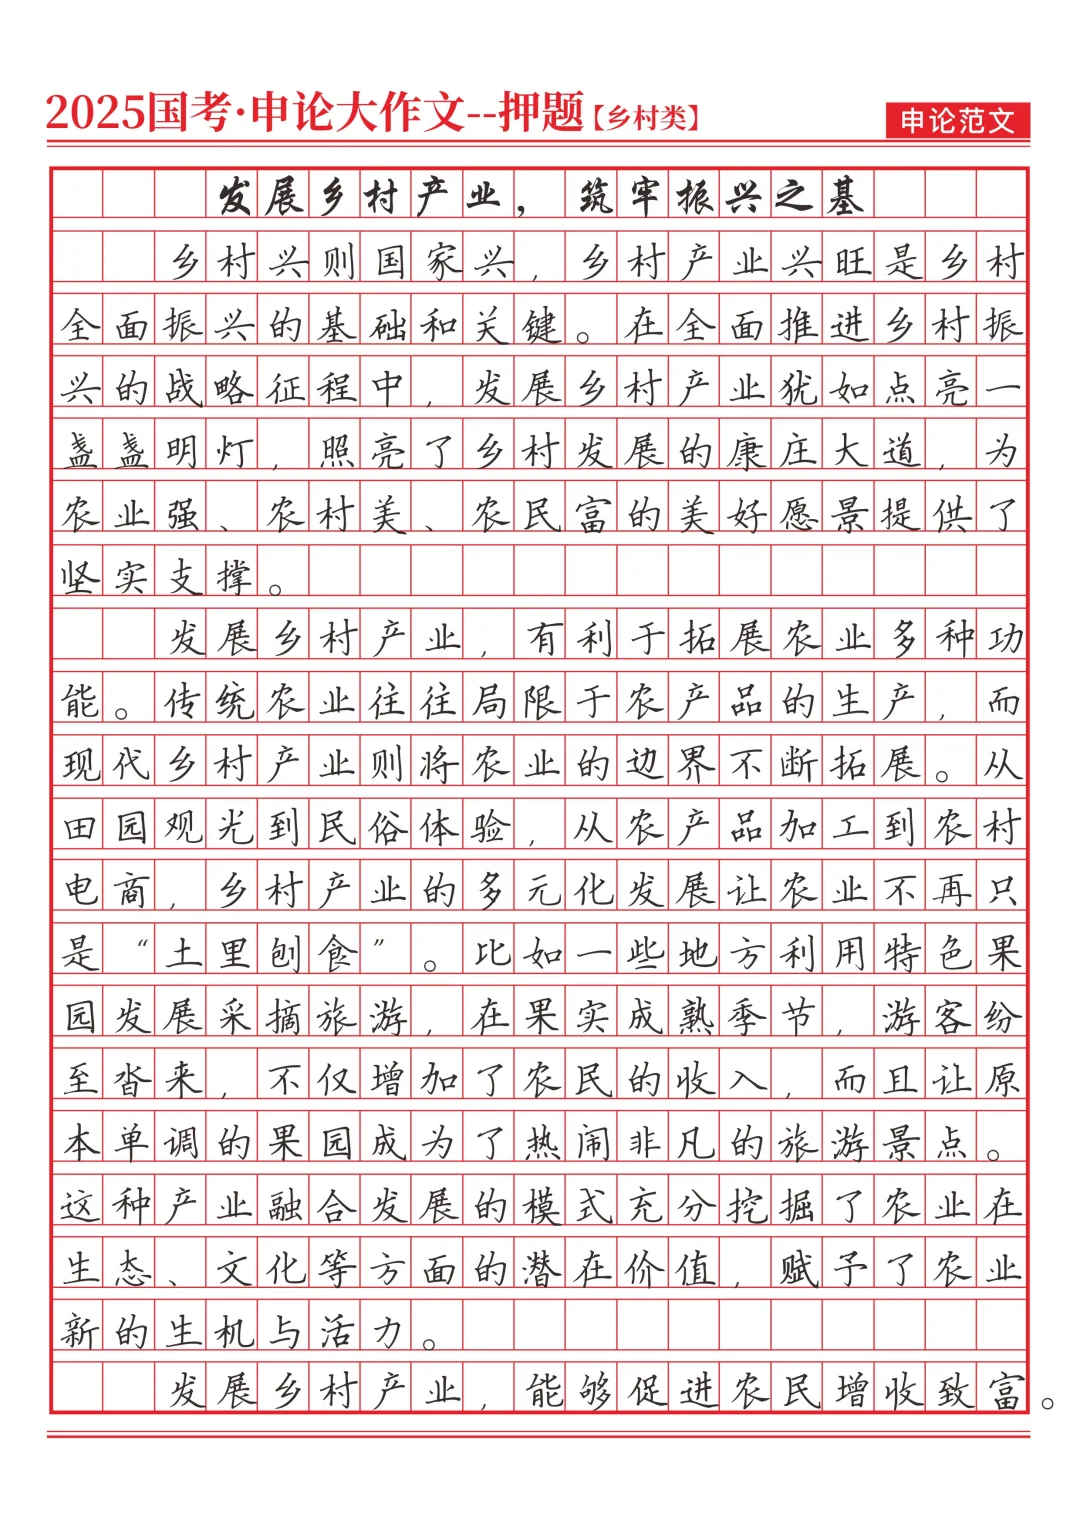 2025国考·申论大作文--押题【乡村类】
申论范文
发展乡村产业，筑牢振兴之基
乡村兴则国家兴，乡村产业兴旺是乡村
全面振兴的基础和关键。在全面推进乡村振
兴的战略征程中，发展乡村产业犹如点亮一
盏盏明灯，照亮了乡村发展的康庄大道，为
农业强、农村美、农民富的美好愿景提供了
坚实支撑。
发展乡村产业，有利于拓展农业多种功
能。传统农业往往局限于农产品的生产，而
现代乡村产业则将农业的边界不断拓展。从
田园观光到民俗体验，从农产品加工到农村
电商，乡村产业的多元化发展让农业不再只
是“土里刨食”。比如一些地方利用特色果
园发展采摘旅游，在果实成熟季节，游客纷
至沓来，不仅增加了农民的收入，而且让原
本单调的果园成为了热闹非凡的旅游景点。
这种产业融合发展的模式充分挖掘了农业在
生态、文化等方面的潜在价值，赋予了农业
新的生机与活力。
发展乡村产业，能够促进农民增收致富。